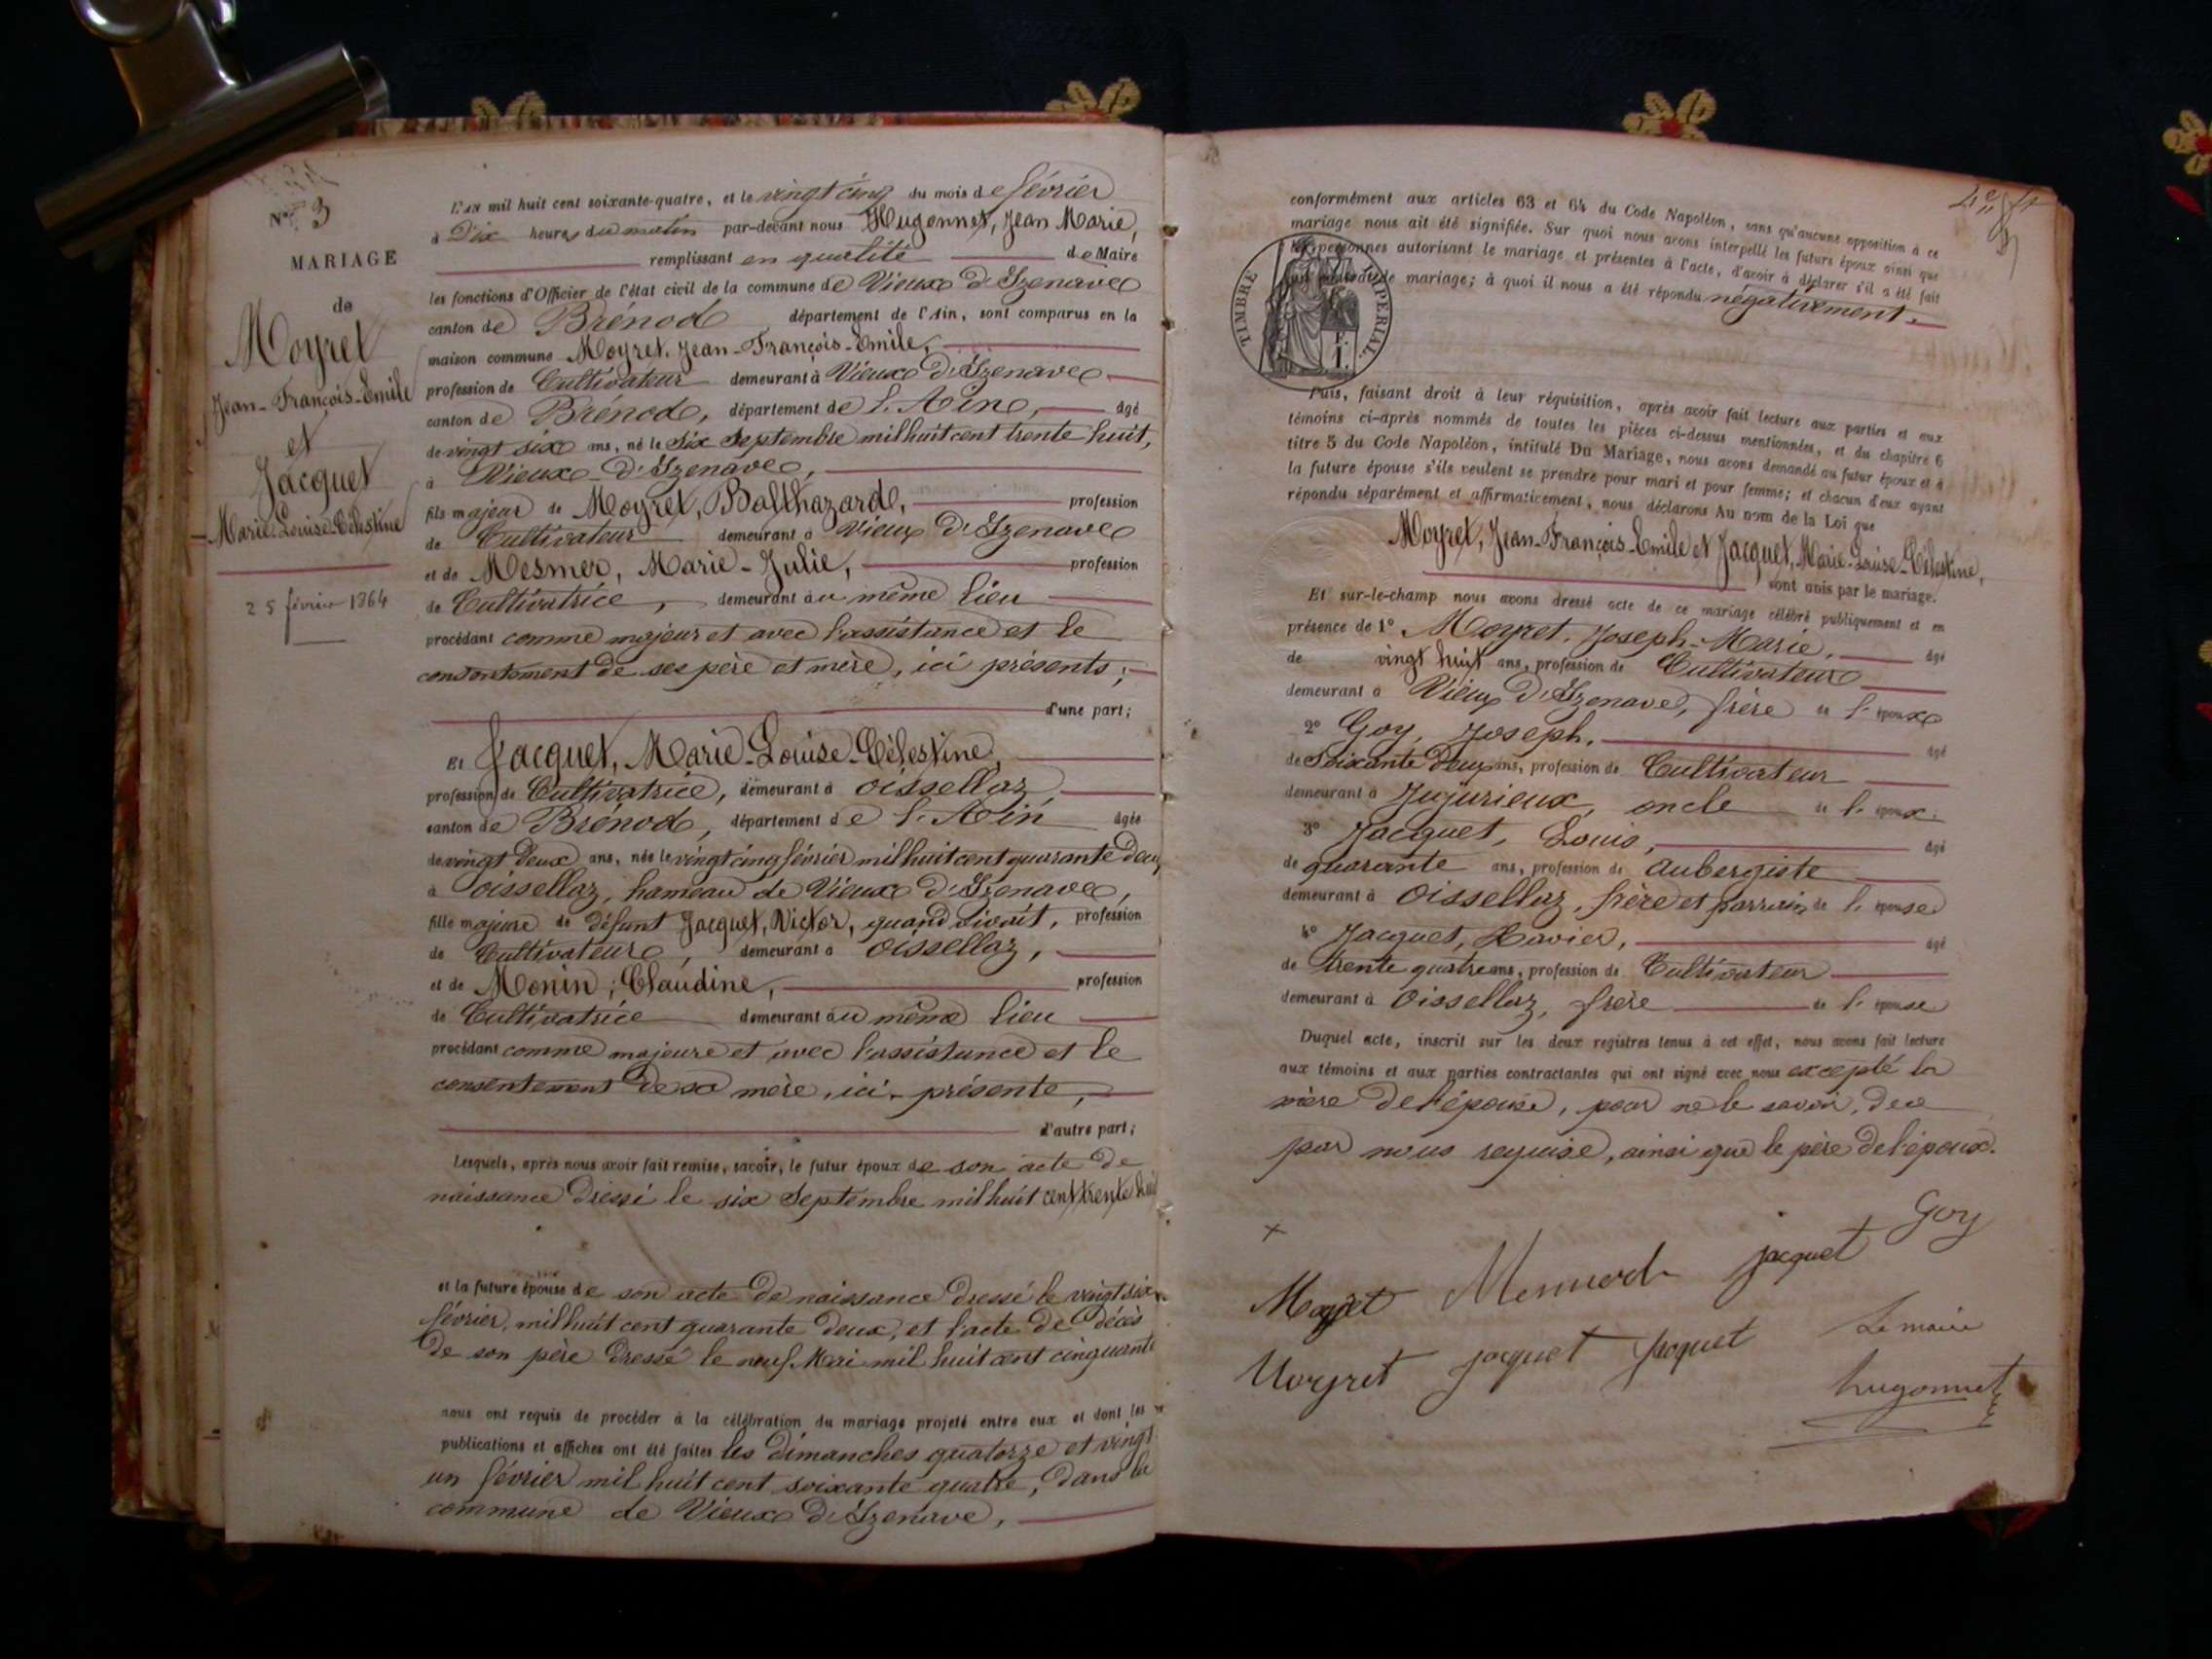 N° 3
MARIAGE
de
Moyret
Jean-François-Emile
et
Jacquet
Marie-Louise-Célestine
25 février 1864
L'an mil huit cent soixante-quatre, et le vingt cinq du mois de février
à Dix heures du matin par-devant nous Hugonnet, Jean Marie,
remplissant en qualité de Maire
les fonctions d'Officier de l'état civil de la commune de Vieux d'Izenave
canton de Brénod département de l'Ain, sont comparus en la
maison commune Moyret, Jean-François-Emile,
profession de Cultivateur demeurant à Vieux d'Izenave
canton de Brénod, département de l'Ain, âgé
de vingt six ans, né le Six Septembre mil huit cent trente huit,
à Vieux-d'Izenave,
fils majeur de Moyret, Balthazard, profession
de Cultivateur demeurant à Vieux d'Izenave
et de Mesmer, Marie-Julie, profession
de Cultivatrice, demeurant au même lieu
procédant comme majeur et avec l'assistance et le
consentement de ses père et mère, ici présents;
d'une part;
Et Jacquet, Marie-Louise-Célestine,
profession de Cultivatrice, demeurant à oissellaz,
canton de Brénod, département de l'Ain âgée
de vingt deux ans, née le vingt cinq février mil huit cent quarante deux
à oissellaz, hameau de Vieux d'Izenave,
fille majeure de défunt Jacquet, Victor, quand vivait, profession
de Cultivateur, demeurant à oissellaz,
et de Monin, Claudine, profession
de Cultivatrice demeurant au même lieu
procédant comme majeure et avec l'assistance et le
consentement de sa mère, ici présente,
d'autre part;
Lesquels, après nous avoir fait remise, savoir, le futur époux de son acte de
naissance dressé le six Septembre mil huit cent trente huit
et la future épouse de son acte de naissance dressé le vingt six
février, mil huit cent quarante deux, et l'acte de décès
de son père dressé le neuf Mai mil huit cent cinquante
nous ont requis de procéder à la célébration du mariage projeté entre eux et dont les
publications et affiches ont été faites les dimanches quatorze et vingt
un février mil huit cent soixante quatre, dans la
commune de Vieux d'Izenave,
conformément aux articles 63 et 64 du Code Napoléon, sans qu'aucune opposition à ce
mariage nous ait été signifiée. Sur quoi nous avons interpellé les futurs époux ainsi que
les personnes autorisant le mariage et présentes à l'acte, d'avoir à déclarer s'il a été fait
de mariage; à quoi il nous a été répondu négativement.
TIMBRE IMPERIAL
Puis, faisant droit à leur réquisition, après avoir fait lecture aux parties et aux
témoins ci-après nommés de toutes les pièces ci-dessus mentionnées, et du chapitre 6
titre 5 du Code Napoléon, intitulé Du Mariage, nous avons demandé au futur époux et à
la future épouse s'ils veulent se prendre pour mari et pour femme; et chacun d'eux ayant
répondu séparément et affirmativement, nous déclarons Au nom de la Loi que
Moyret, Jean-François-Emile et Jacquet, Marie-Louise-Célestine,
sont unis par le mariage.
Et sur-le-champ nous avons dressé acte de ce mariage célébré publiquement et en
présence de 1° Moyret, Joseph-Marie, âgé
de vingt huit ans, profession de Cultivateur
demeurant à Vieux d'Izenave, frère de l'époux
2° Goy, Joseph, âgé
de Soixante deux ans, profession de Cultivateur
demeurant à Jujurieux, oncle de l'époux.
3° Jacquet, Louis, âgé
de quarante ans, profession de aubergiste
demeurant à Oissellaz, frère et parrain de l'épouse
4° Jacquet, Xavier, âgé
de trente quatre ans, profession de Cultivateur
demeurant à Oissellaz, frère de l'épouse
Duquel acte, inscrit sur les deux registres tenus à cet effet, nous avons fait lecture
aux témoins et aux parties contractantes qui ont signé avec nous excepté la
mère de l'épouse, pour ne le savoir, de ce
par nous requise, ainsi que le père de l'époux.
Goy
Moyret jacquet
Moyret jacquet jacquet Le maire
hugonnet